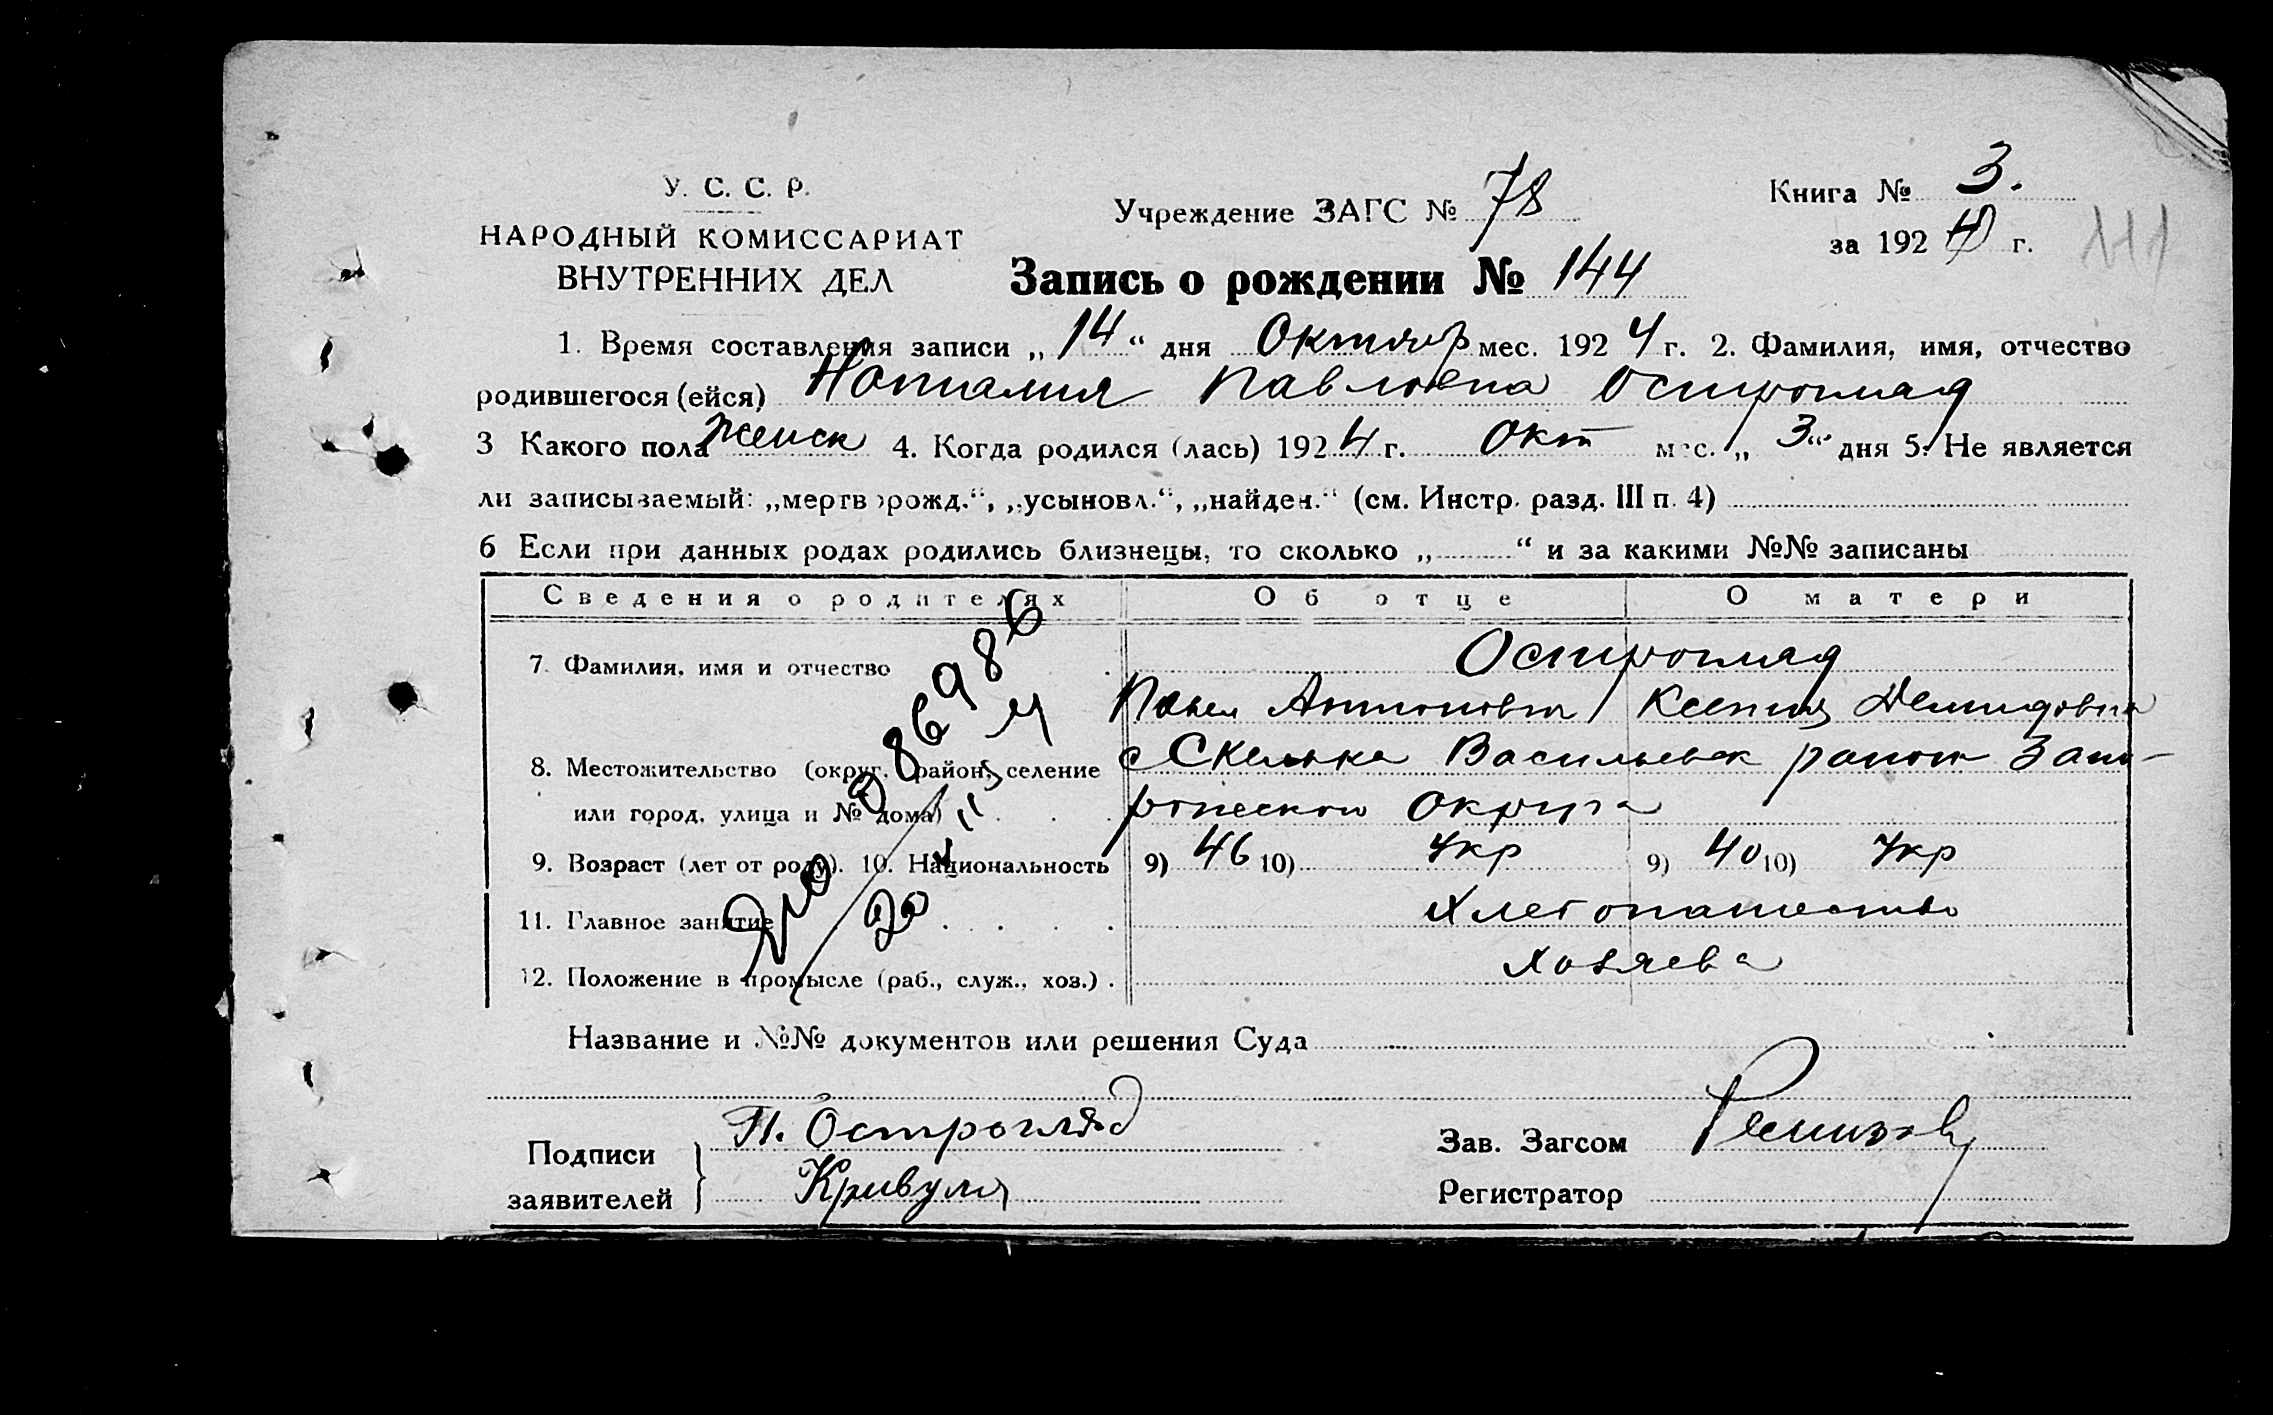 У. С. С. Р.
НАРОДНЫЙ КОМИССАРИАТ
ВНУТРЕННИХ ДЕЛ
Учреждение ЗАГС № 78
Книга № 3.
за 1924 г.
Запись о рождении № 144
1. Время составления записи „14“ дня Октябр мес. 1924 г. 2. Фамилия, имя, отчество
родившегося (ейся) Наталия Павловна Острогляд
3 Какого пола женск 4. Когда родился (лась) 1924 г. Окт мес. „3“ дня 5. Не является
ли записываемый: „мертворожд.“, „усыновл.“, „найден.“ (см. Инстр. разд. III п. 4)
6 Если при данных родах родились близнецы, то сколько „ “ и за какими №№ записаны
Сведения о родителях Об отце О матери
7. Фамилия, имя и отчество Острогляд
Павел Антонович Ксения Демидовна
8. Местожительство (округ, район, селение с Скелька Васильевск район Запо-
или город, улица и № дома) рожской округа
9. Возраст (лет от роду). 10. Национальность 9) 46 10) Укр 9) 40 10) Укр
11. Главное занятие Хлебопашество
12. Положение в промысле (раб., служ., хоз.) хозяева
Название и №№ документов или решения Суда
Подписи заявителей П. Острогляд
Кривуля
Зав. Загсом
Регистратор